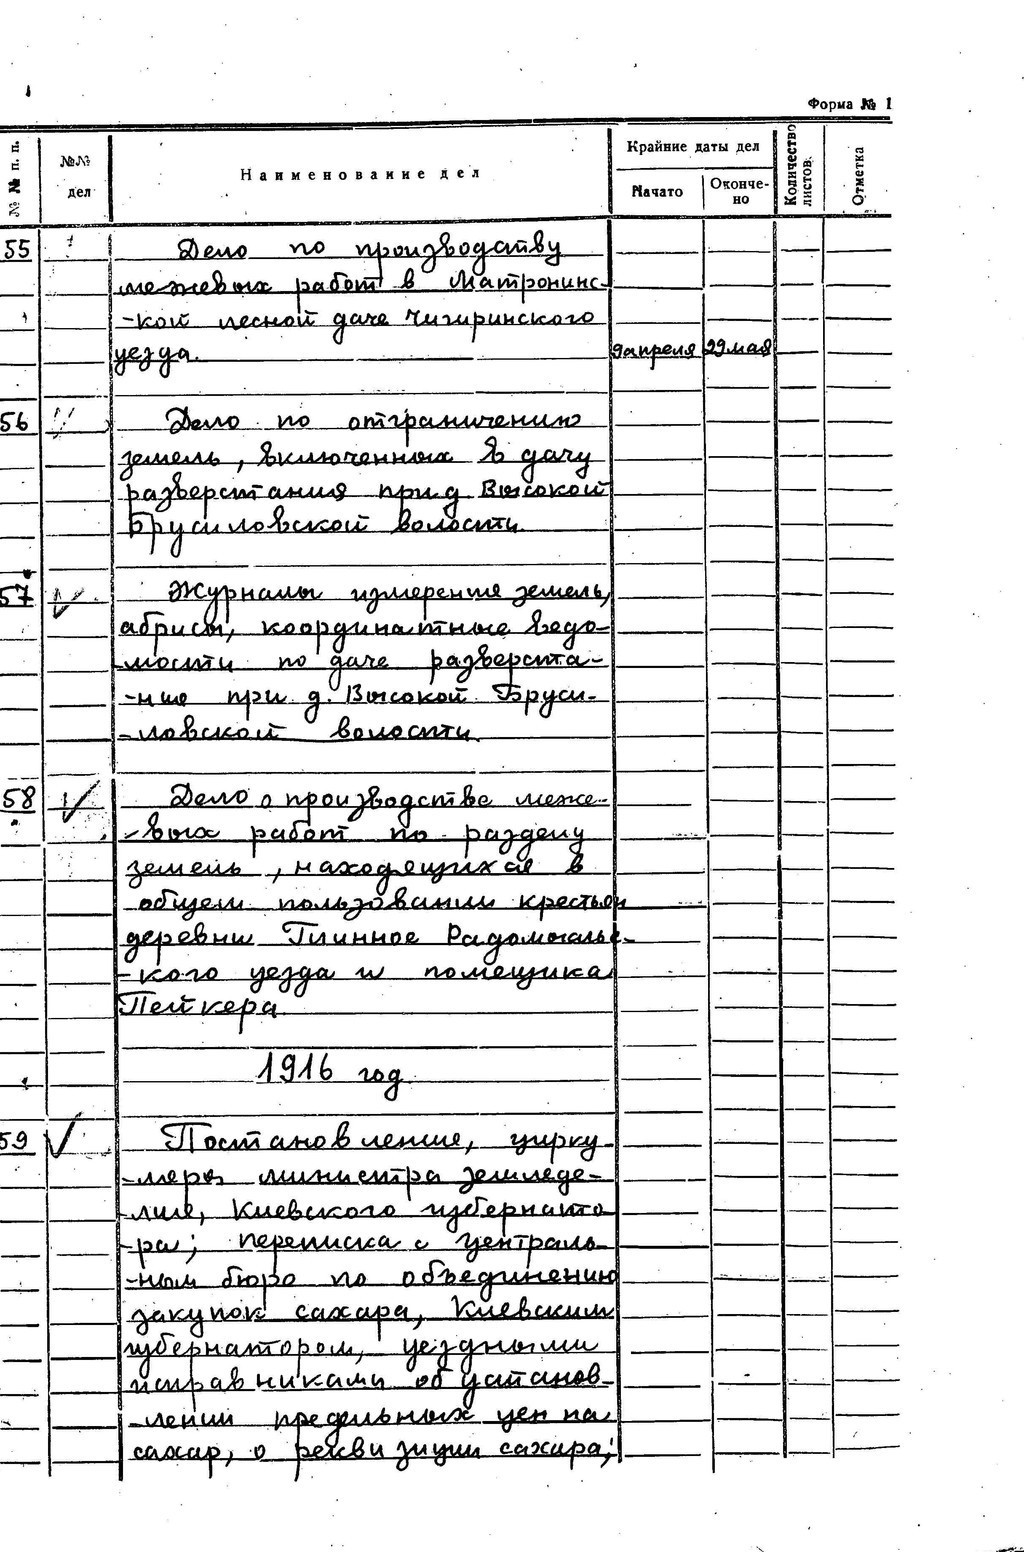 Форма № 1
№ № п. п.
№№ дел
Наименование дел
Крайние даты дел
Начато
Окончено
Количество листов.
Отметка
55 Дело по производству
межевых работ в Матронинс-
-кой лесной даче Чигиринского
уезда. 9 апреля 29 мая
56 Дело по отграничению
земель, включенных в дачу
разверстания при д. Высокой
Брусиловской волости
57 Журналы измерения земель,
абрисы, координатные ведо-
-мости по даче разверста-
-ния при д. Высокой Бруси-
-ловской волости
58 Дело о производстве меже-
-вых работ по разделу
земель, находящихся в
общем пользовании крестьян
деревни Глинное Радомысльс-
-кого уезда и помещика
Пейкера
1916 год
59 Постановление, цирку
-ляры министра земледе-
-лия, Киевского губернато
-ра; переписка с централь-
-ным бюро по объединению
закупок сахара, Киевским
губернатором, уездными
исправниками об установ-
-лении предельных цен на
сахар, о реквизиции сахара;